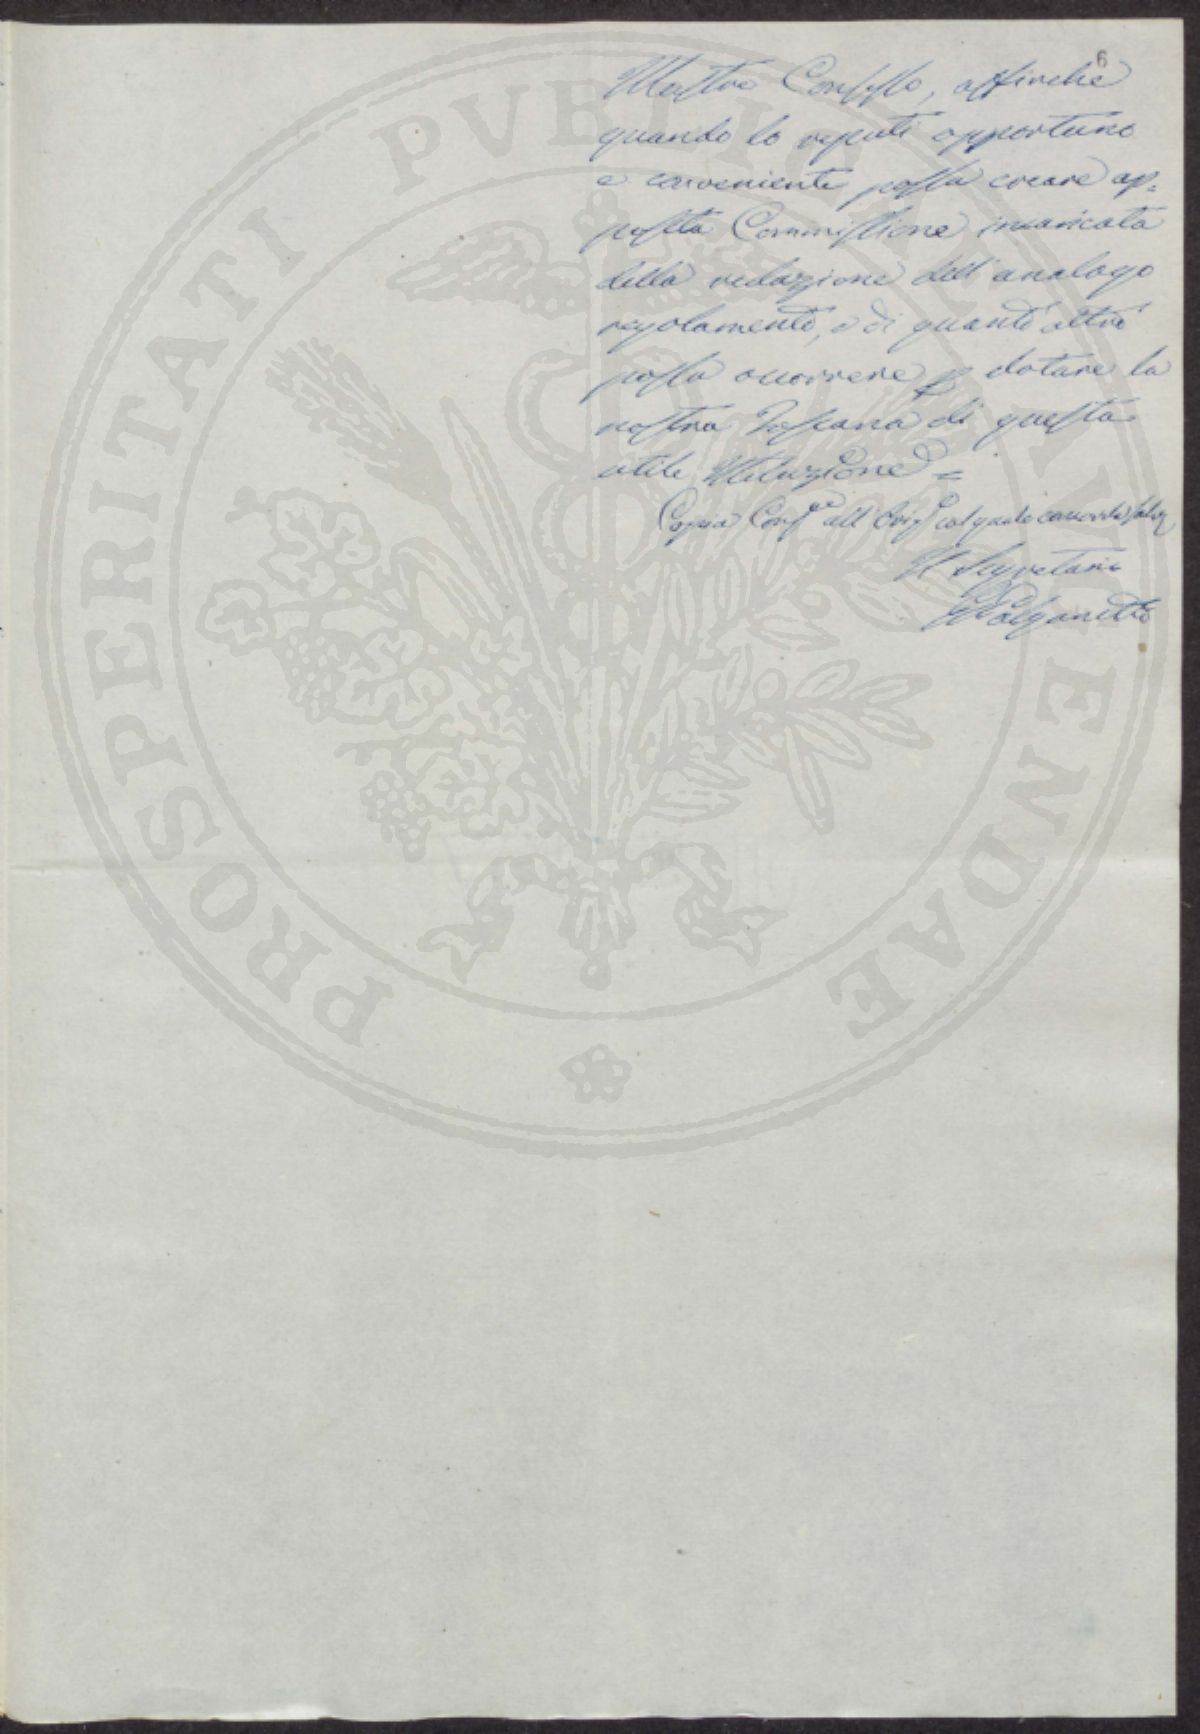 6
Illustre Consesso, affinche
quando lo reputi opportuno
e conveniente possa creare ap=
posita Commissione incaricata
della redazione dell'analogo
regolamento, e di quant'altro
possa occorrere p dotare la
nostra Toscana di questa
utile Istituzione =
Copia Conf.e all'Orig.e col quale concorda salvo
Il Segretario
PROSPERITATI PVBLICAE AVGENDAE